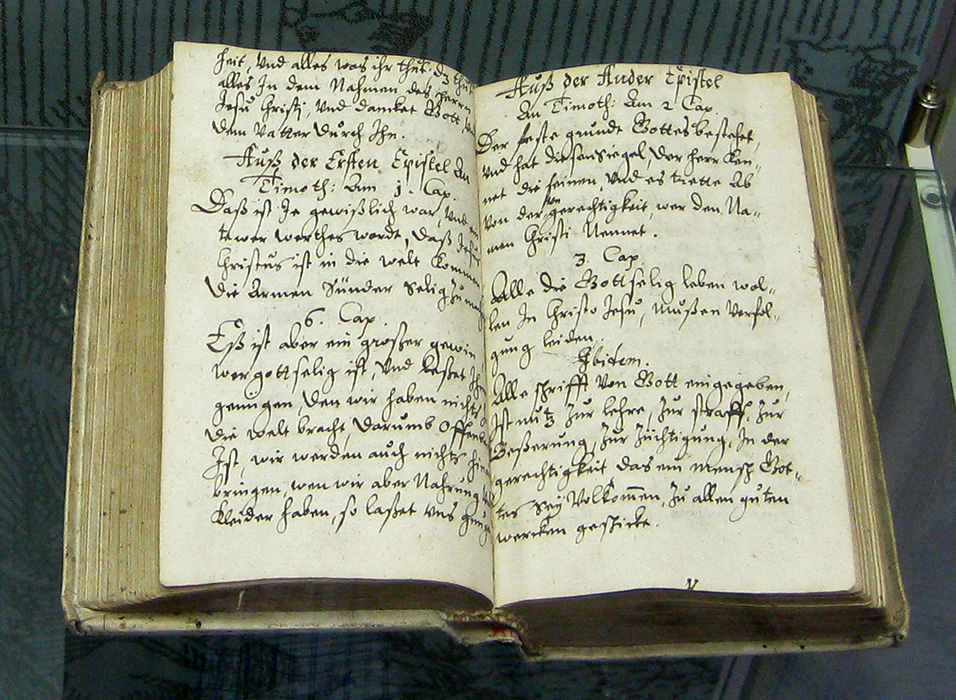 heit, Vnd alles was ihr thut. Dz thut
alles In dem Nahmen des Herrn
Jesu Christi, Vnd dancket Gott
dem Vatter Durch Ihn.
Auß der Ersten Epistel An
Timoth: Am 1. Cap.
Daß ist Je gewißlich war, Vnd
tewer werthes wordt, daß Jesus
Christus ist in die welt Kommen
Die Armen Sünder Selig zu
6. Cap.
Eß ist aber ein großer gewin
wer gottselig ist, Vnd laßet Ihm
genügen, Den wir haben nichts
die welt bracht, Darumb Offenbar
Ist, wir werden auch nichts
bringen, wen wir aber Nahrung
Kleider haben, so laßet vns
Auß der Ander Epistel
An Timoth: Am 2 Cap.
Der feste grundt Gottes bestehet,
Vnd hat diesen Siegel Der Herr Ken-
net die seinen, Vnd es trette Ab
Von der Vngerechtigkeit, wer den Na-
men Christi Nennet.
3. Cap.
Alle die Gottselig leben wol-
len In Christo Jesu, Mußen Verfol-
gung leiden.
Ibidem.
Alle schrifft Von Gott eingegeben,
Ist nutz zur lehre, zur straff, zur
Beßerung, zur züchtigung, In der
gerechtigkeit das ein mensch Got-
tes Sey Volkommen, zu allen guten
wercken geschickt.